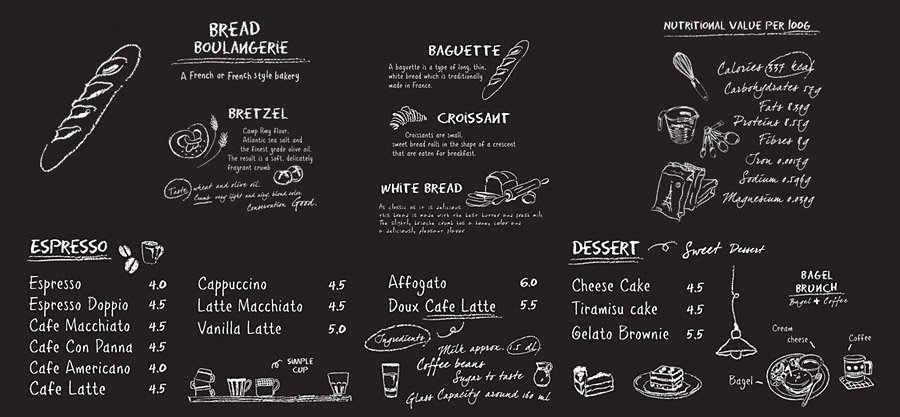 BREAD
BOULANGERIE
A French or French style bakery
BRETZEL
Camp Rmy flour,
Atlantic sea salt and
the finest grade olive oil.
The result is a soft, delicately
fragrant crumb
Taste wheat and olive oil.
Crumb very light and alvg. blend color
Conservation Good.
BAGUETTE
A baguette is a type of long, thin,
white bread which is traditionally
made in France.
CROISSANT
Croissants are small,
sweet bread rolls in the shape of a crescent
that are eaten for breakfast.
WHITE BREAD
As classic as it is delicious
this bread is made with the best butter and fresh milk
The slightly brioche crumb has a honey color and
a deliciously pleasant flavor
NUTRITIONAL VALUE PER 100G
Calories 337 kcal
Carbohydrates 57g
Fats 8.30g
Proteins 8.55g
Fibres 8g
Iron 0.0017g
Sodium 0.596g
Magnesium 0.030g
ESPRESSO
Espresso 4.0
Espresso Doppio 4.5
Cafe Macchiato 4.5
Cafe Con Panna 4.5
Cafe Americano 4.0
Cafe Latte 4.5
Cappuccino 4.5
Latte Macchiato 4.5
Vanilla Latte 5.0
SIMPLE
CUP
Affogato 6.0
Doux Cafe Latte 5.5
Ingredients
Milk approx. 1.5 dl
Coffee beans
Sugar to taste
Glass Capacity around 160 ml
DESSERT Sweet Dessert
Cheese Cake 4.5
Tiramisu cake 4.5
Gelato Brownie 5.5
BAGEL
BRUNCH
Bagel + Coffee
Cream
cheese
Coffee
Bagel